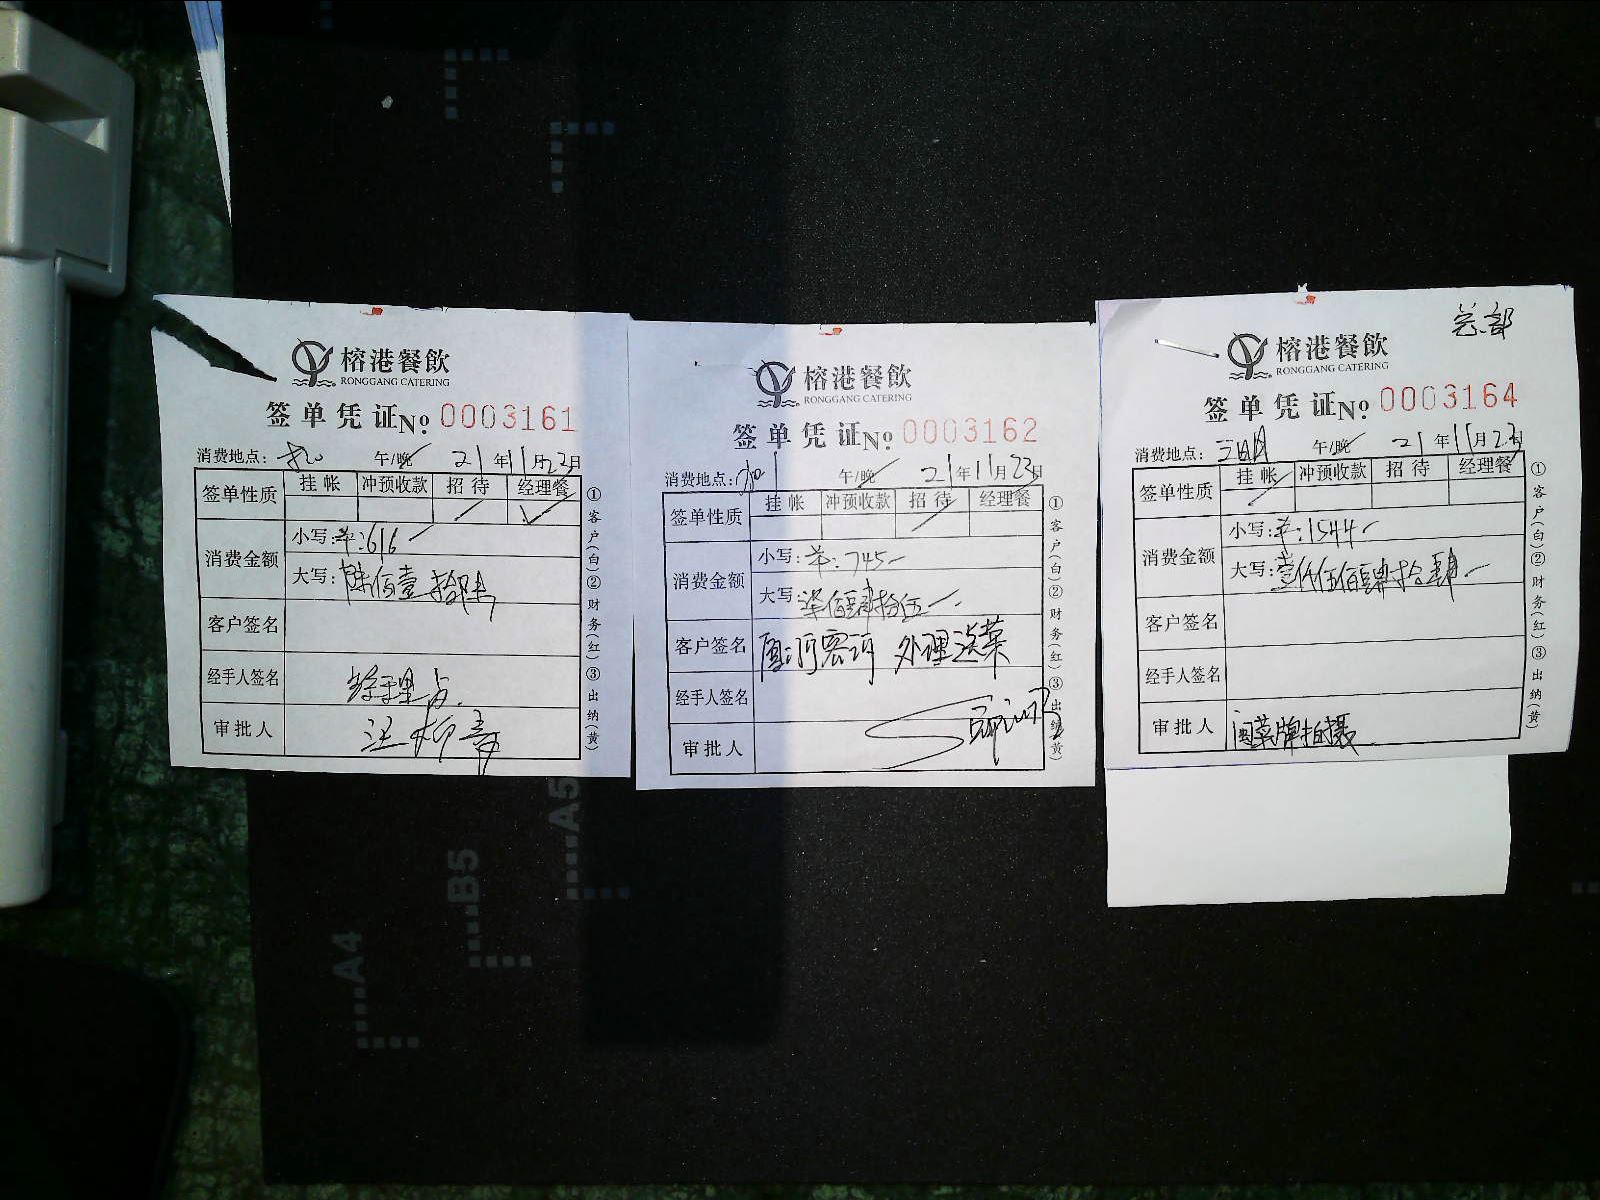 榕港餐飲
RONGGANG CATERING
签单凭证No 0003161
消费地点: 午/晚 21年11月23日
签单性质 挂帐 冲预收款 招待 经理餐
消费金额 小写:羊:616
大写:陆佰壹拾陆
客户签名
经手人签名
审批人
①客户(白)②财务(红)③出纳(黄)
榕港餐飲
RONGGANG CATERING
签单凭证No 0003162
消费地点: 午/晚 21年11月23日
签单性质 挂帐 冲预收款 招待 经理餐
消费金额 小写:羊:745
大写:柒佰肆拾伍
客户签名 处理送菜
经手人签名
审批人
①客户(白)②财务(红)③出纳(黄)
总部
榕港餐飲
RONGGANG CATERING
签单凭证No 0003164
消费地点:三明 午/晚 21年11月23日
签单性质 挂帐 冲预收款 招待 经理餐
消费金额 小写:羊:1544
大写:壹仟伍佰肆拾肆
客户签名
经手人签名
审批人 闽菜牌拍摄
①客户(白)②财务(红)③出纳(黄)
A5
B5
A4